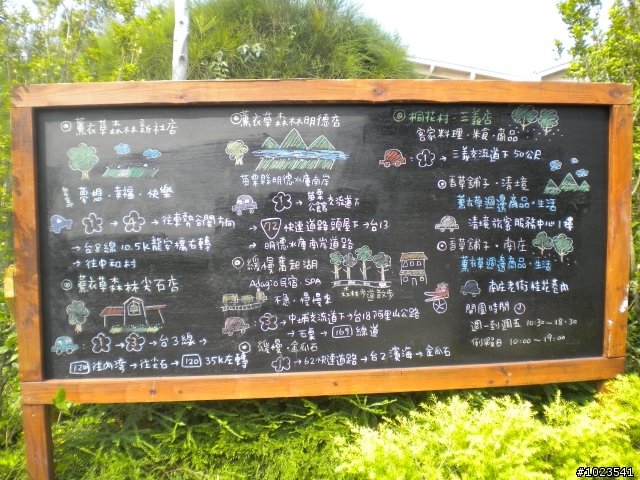 ◎薰衣草森林新社店
夢想・幸福・快樂
→往東勢台開方向
→台8線 10.5K龍安橋右轉
→往中和村
◎薰衣草森林尖石店
→台3線→
120往內灣→往尖石→120 35K左轉
◎薰衣草森林明德店
苗栗縣明德水庫南岸
→苗栗公館交流道下
→72快速道路頭屋下→台13
→明德水庫南岸道路
◎緩慢奮起湖
Adagio民宿・SPA
不急・慢慢來
森林步道散步
→中埔交流道下→台18阿里山公路
→石棹→169線道
◎緩慢・金瓜石
→62快速道路→台2濱海→金瓜石
◎桐花村・三義店
客家料理・米食・商品
→三義交流道下50公尺
◎香草舖子・清境
薰衣草週邊商品・生活
清境旅客服務中心1樓
◎香草舖子・南庄
薰衣草週邊商品・生活
南庄老街桂花巷內
開園時間
週一到週五 10:30~18:30
例假日 10:00~19:00
#1023541